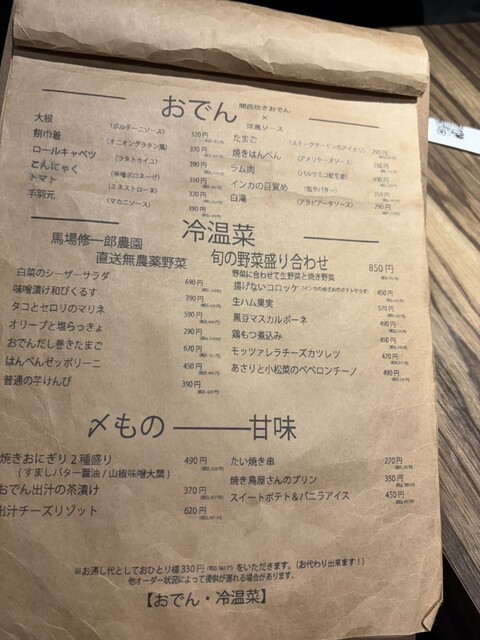 おでん
関西炊きおでん
×
洋風ソース
大根 (ポルチーニソース) 320円
餅巾着 (オニオングラタン風) 370円
ロールキャベツ (ラタトゥイユ) 470円
こんにゃく (味噌ボロネーゼ) 390円
トマト (ミネストローネ) 350円
手羽元 (マカニソース) 320円
390円
たまご (スモーククリームのアイオリ) 290円
焼きはんぺん (アメリケーヌソース) 350円
ラム肉 (バルサミコ紅生姜) 390円
インカの目覚め (塩辛バター) 350円
白滝 (アラビアータソース) 290円
冷温菜
馬場修一郎農園
直送無農薬野菜 旬の野菜盛り合わせ 850円
野菜に合わせて生野菜と焼き野菜
白菜のシーザーサラダ 690円
味噌漬け和びくるす 390円
タコとセロリのマリネ 590円
オリーブと塩らっきょ 290円
おでんだし巻きたまご 670円
はんぺんゼッポリーニ 450円
普通の芋けんぴ 390円
揚げないコロッケ (インカのめざめのポテトサラダ) 450円
生ハム果実 570円
黒豆マスカルポーネ 490円
鶏もつ煮込み 450円
モッツァレラチーズカツレツ 470円
あさりと小松菜のペペロンチーノ 490円
〆もの
焼きおにぎり2種盛り 490円
(すましバター醤油 / 山椒味噌大葉)
おでん出汁の茶漬け 370円
出汁チーズリゾット 620円
甘味
たい焼き串 270円
焼き鳥屋さんのプリン 350円
スイートポテト&バニラアイス 450円
※お通し代としておひとり様330円(税込363円)をいただきます。(お代わり出来ます!)
他オーダー状況によって提供が遅れる場合があります。
【おでん・冷温菜】